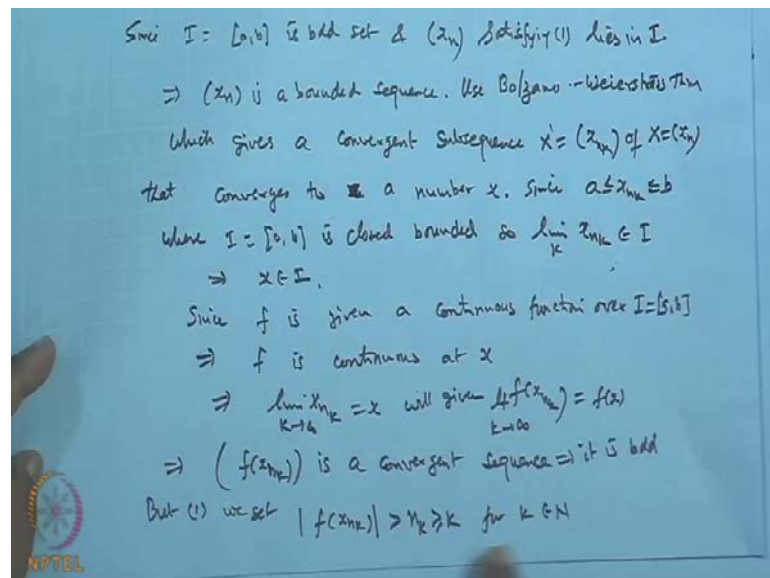 Since I = [a,b] is bdd set & (xn) Satisfyiy (1) lies in I
⇒ (xn) is a bounded sequence. Use Bolzano -- Weierstrass Thm
Which gives a convergent Subsequence X' = (x_{n_k}) of X=(xn)
that converges to a number x. Since a ≤ x_{n_k} ≤ b
where I = [a, b] is closed bounded so lim_k x_{n_k} ∈ I
⇒ x ∈ I.
Since f is given a continuous function over I=[a,b]
⇒ f is continuous at x
⇒ lim_{k→∞} x_{n_k} = x will given Lt_{k→∞} f(x_{n_k}) = f(x)
⇒ (f(x_{n_k})) is a convergent sequence ⇒ it is bdd
But (1) we get |f(x_{n_k})| > n_k ≥ k for k ∈ N
NPTEL